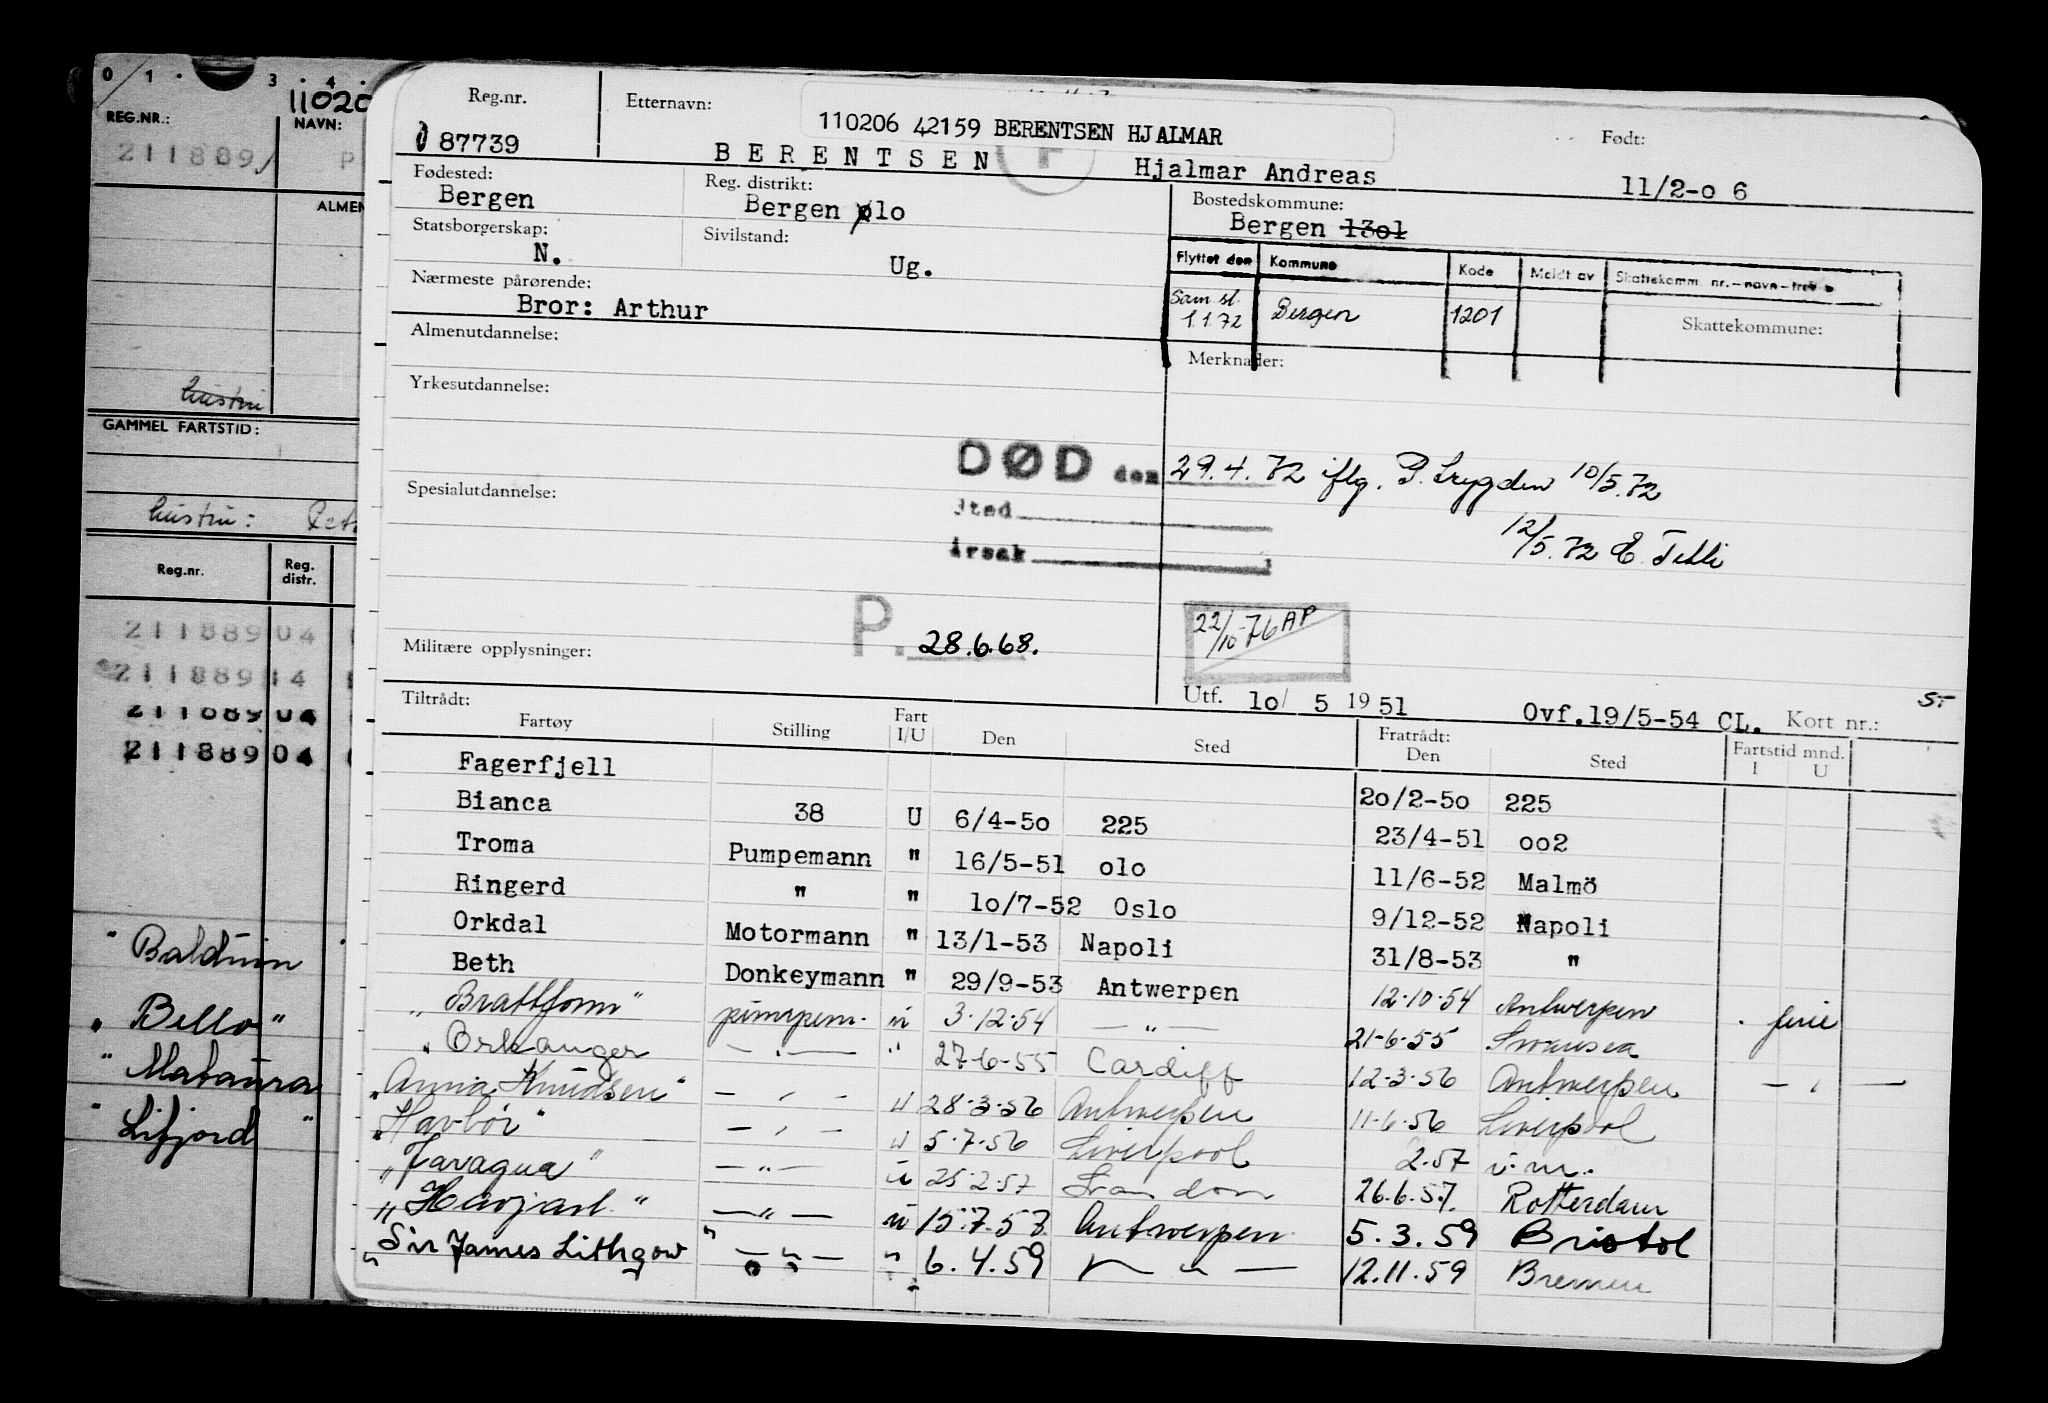 0 1 . 3 . 4 .
11020
REG.NR.:
NAVN:
211889
P
ALMEN
hustru
GAMMEL FARTSTID:
hustru:
Reg.nr.
Reg. distr.
211889 04
211889 14
211889 04
211889 04
" Baldvin
" Bello"
" Mataura
" Lifjord "
Reg.nr.
87739
Etternavn:
110206 42159 BERENTSEN HJALMAR
BERENTSEN
Hjalmar Andreas
Født:
11/2-o 6
Fødested:
Bergen
Reg. distrikt:
Bergen olo
Bostedskommune:
Bergen 13o1
Statsborgerskap:
N.
Sivilstand:
Ug.
Flyttet den Kommune Kode Meldt av Skattekomm. nr.-navn-
Sam.sl. 1.1.72 Bergen 1201
Skattekommune:
Nærmeste pårørende:
Bror: Arthur
Almenutdannelse:
Merknader:
Yrkesutdannelse:
DØD den 29.4.72 iflg. P. Trygden 10/5.72
Sted
12/5.72
årsak
Spesialutdannelse:
P. 28.6.68.
22/10-76 AP
Militære opplysninger:
Utf. 1o/ 5 1951
Ovf.19/5-54 CL.
Kort nr.:
S-
Tiltrådt:
Fartøy Stilling Fart I/U Den Sted Fratrådt: Den Sted Fartstid mnd. I U
Fagerfjell 2o/2-5o 225
Bianca 38 U 6/4-5o 225 23/4-51 oo2
Troma Pumpemann " 16/5-51 olo 11/6-52 Malmö
Ringerd " " 1o/7-52 Oslo 9/12-52 Napoli
Orkdal Motormann " 13/1-53 Napoli 31/8-53 "
Beth Donkeymann " 29/9-53 Antwerpen 12.10.54 Antwerpen . ferie
" Brattholm" pumpem. u 3.12.54 — " — 21-6-55 Swansea
" Orkanger — " — " 27-6-55 Cardiff 12-3-56 Antwerpen — " —
"Anna Knudsen" — " — u 28-3-56 Antwerpen 11-6-56 Liverpool
"Havbör" — " — u 5.7.56 Liverpool 2.57 u.m.
"Javagua" — " — u 25.2.57 26.6.57. Rotterdam
"Havjarl" — " — u 15.7.57 Antwerpen 5.3.59 Bristol
"Sir James Lithgow" — " — " 6.4.59 — " — 12.11.59 Bremen